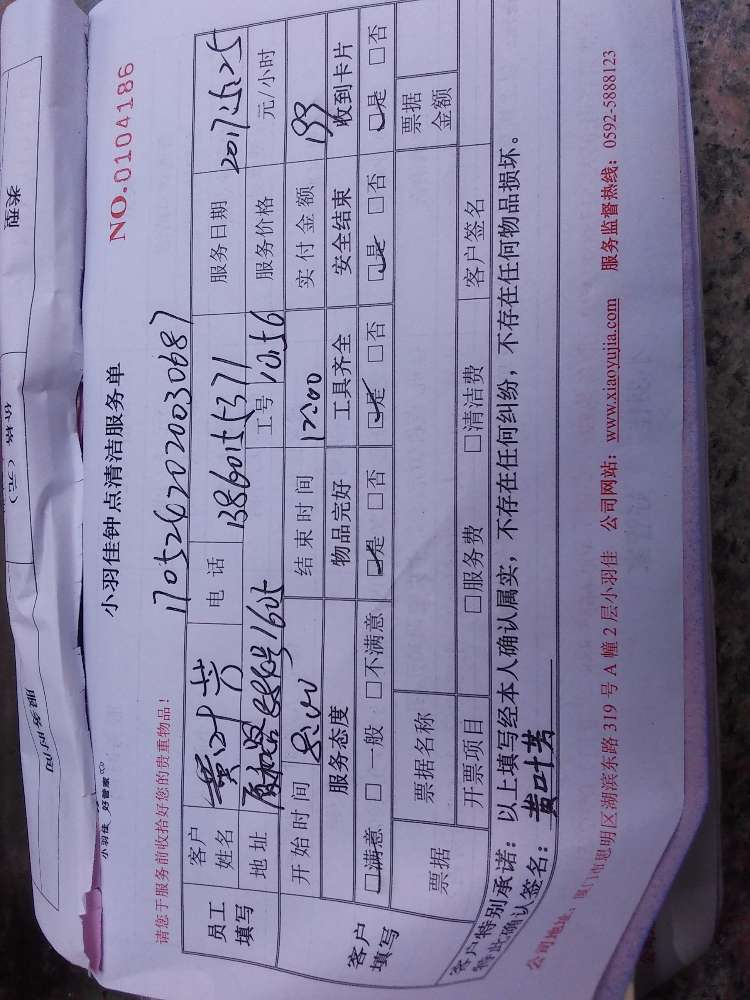 类型
价格（元）
服务时间
小羽佳 好管家
小羽佳钟点清洁服务单
NO.0104186
请您于服务前收拾好您的贵重物品！
员工填写
客户姓名 黄叶芳 电话 服务日期 2017.5.25
地址 工号 1056 服务价格 元/小时
开始时间 8:00 结束时间 12:00 实付金额 199
客户填写
服务态度 物品完好 工具齐全 安全结束 收到卡片
□满意 □一般 □不满意 □是 □否 □是 □否 □是 □否 □是 □否
票据 票据名称 票据金额
开票项目 □服务费 □清洁费 客户签名
客户特别承诺：以上填写经本人确认属实，不存在任何纠纷，不存在任何物品损坏。
特此确认签名：黄叶芳
公司地址：厦门市思明区湖滨东路319号A幢2层小羽佳 公司网站：www.xiaoyujia.com 服务监督热线：0592-5888123